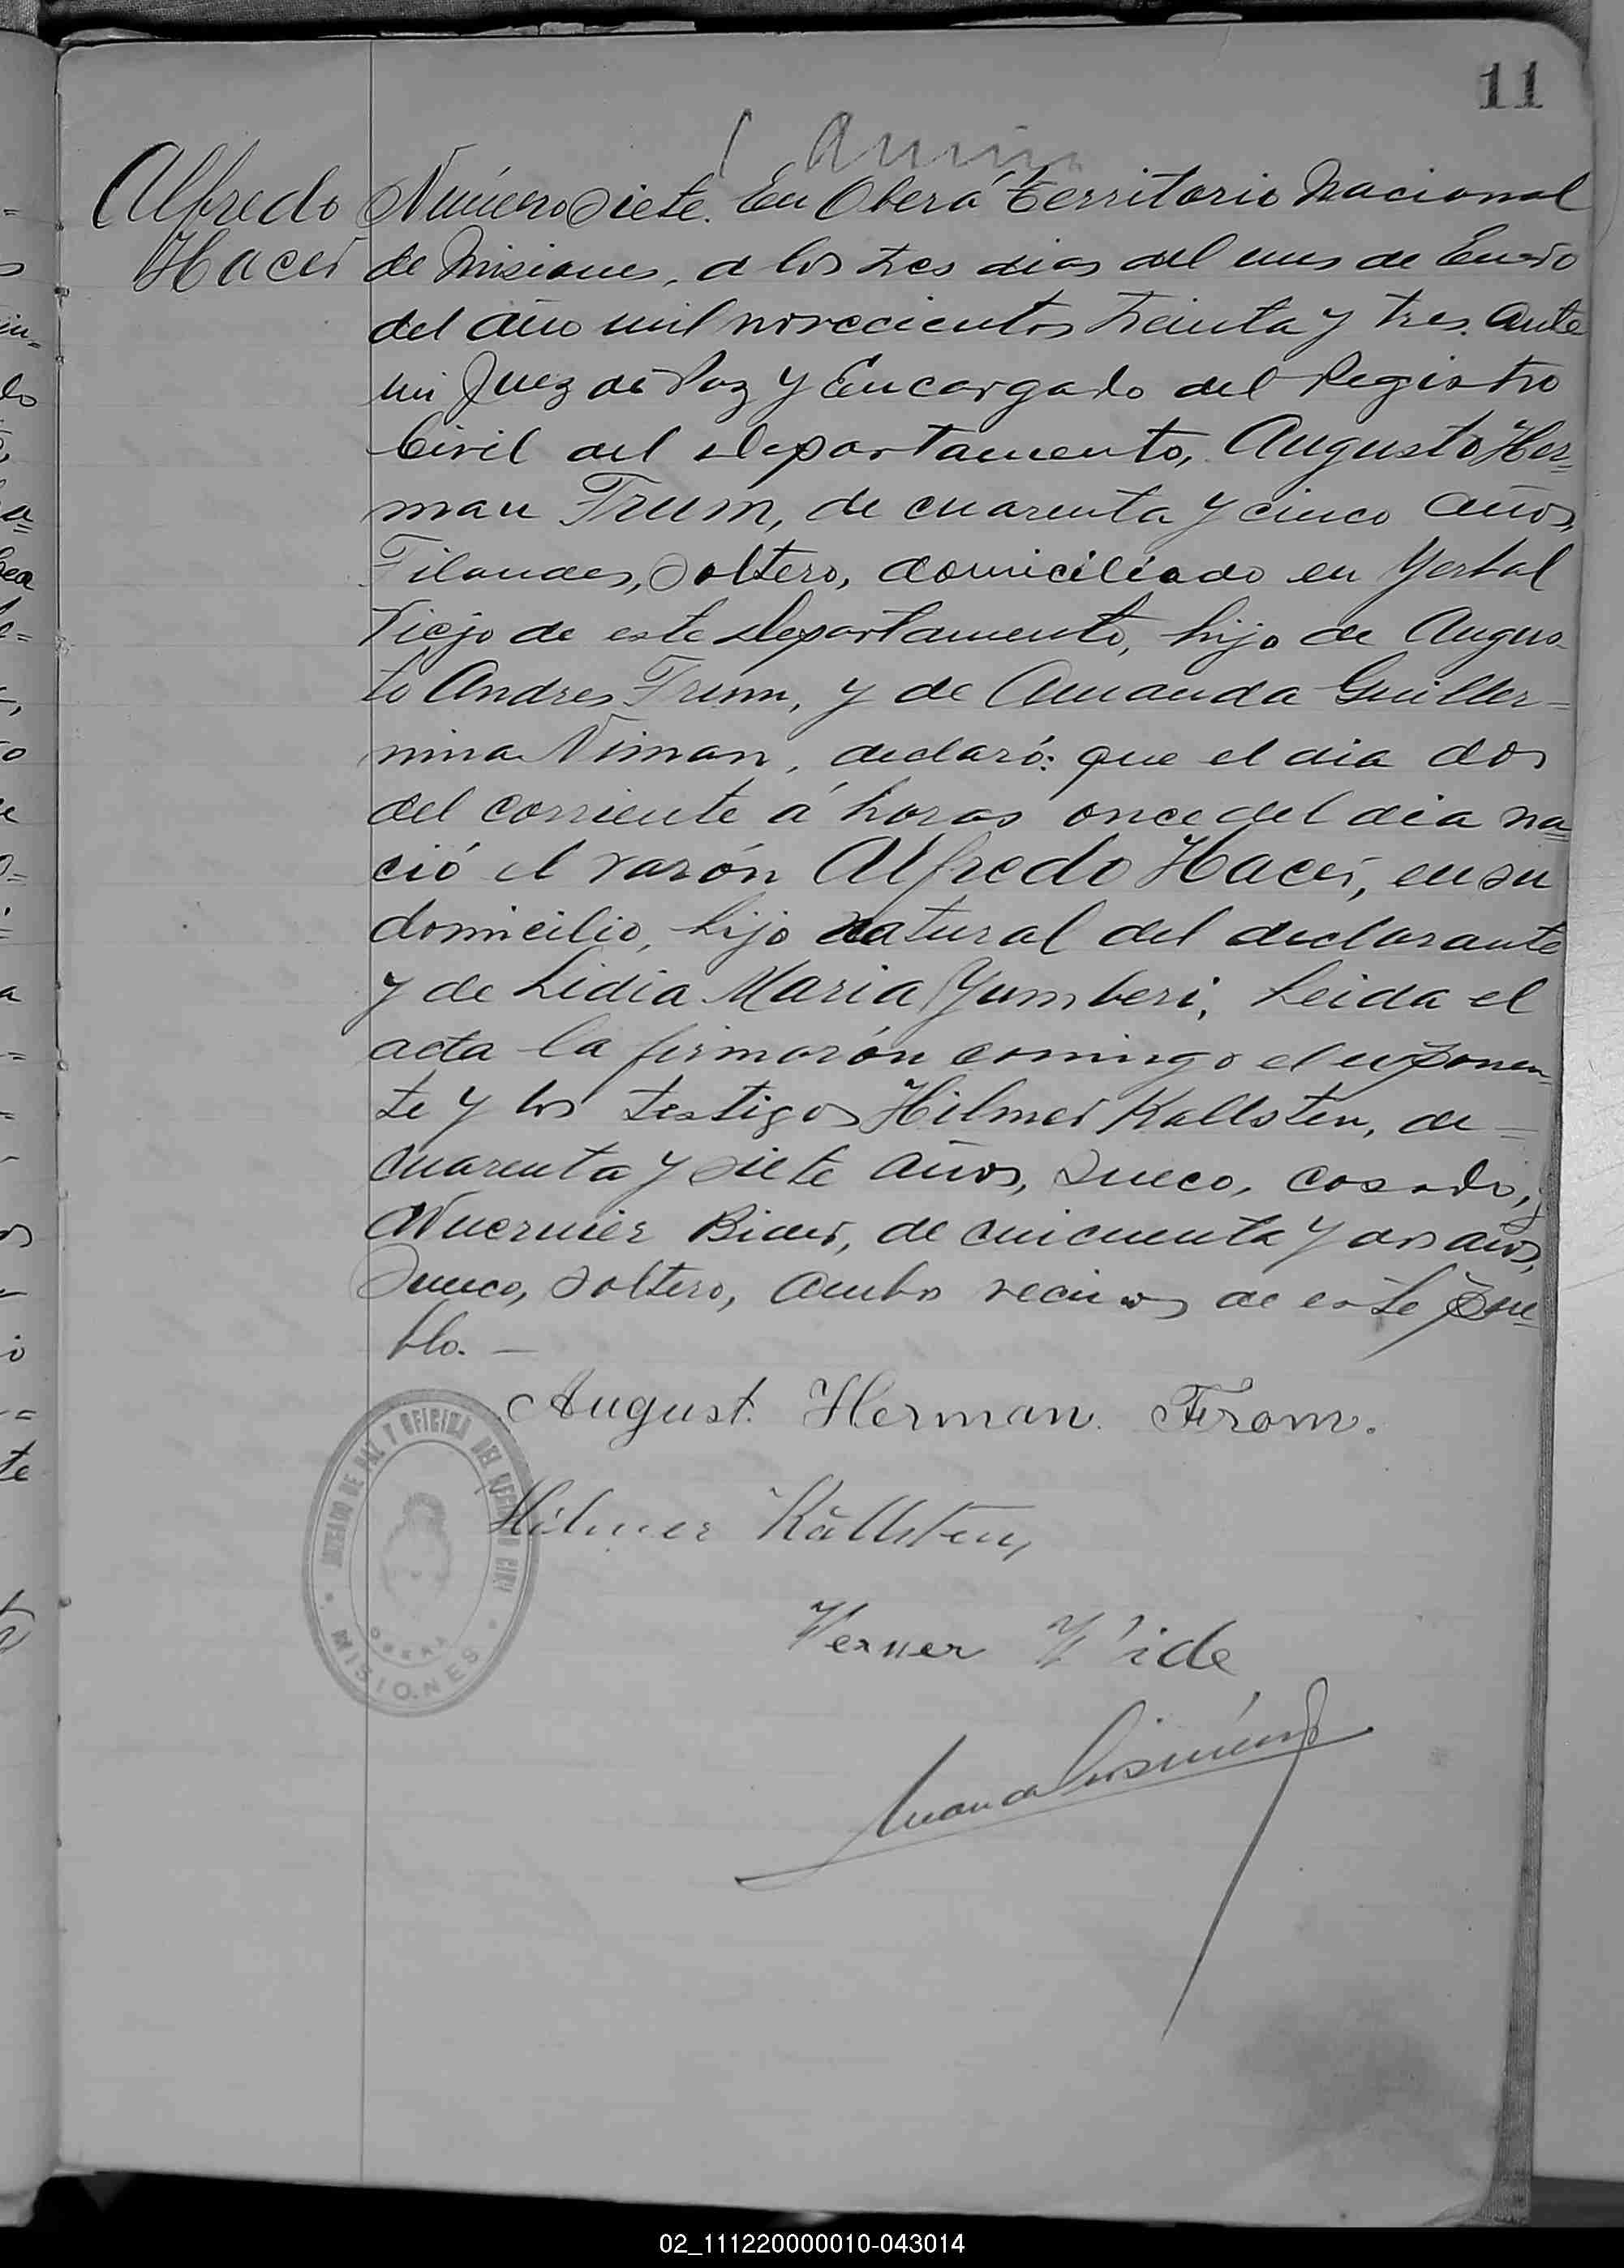 11
Alfredo
Hacer
Número Siete. En Oberá Territorio Nacional
de Misiones, a los tres dias del mes de Enero
del año mil novecientos treinta y tres. ante
mi Juez de Paz y Encargado del Registro
Civil del departamento, Augusto Her=
man Frum, de cuarenta y cinco años,
Filandes, Soltero, domiciliado en Yerbal
Viejo de este departamento, hijo de Augus-
to Andres Frum, y de Amanda Guiller-
mina Niman, declaró: que el dia dos
del corriente á horas once del dia na=
ció el varón Alfredo Hacer, en su
domicilio, hijo natural del declarante
y de Lidia Maria Yumberi, Leida el
acta la firmarón comingo el exponen=
te y los testigos Hilmer Kallsten, de
cuarenta y siete años, Sueco, casado, y
Wuernier, de cincuenta y dos años,
Sueco, Soltero, ambos vecinos de este pue=
blo. —
August. Herman. From.
Hilmer Kållsten,
Verner Wide
JUZGADO DE PAZ Y OFICINA DEL REGISTRO CIVIL
OBERA
MISIONES
02_111220000010-043014